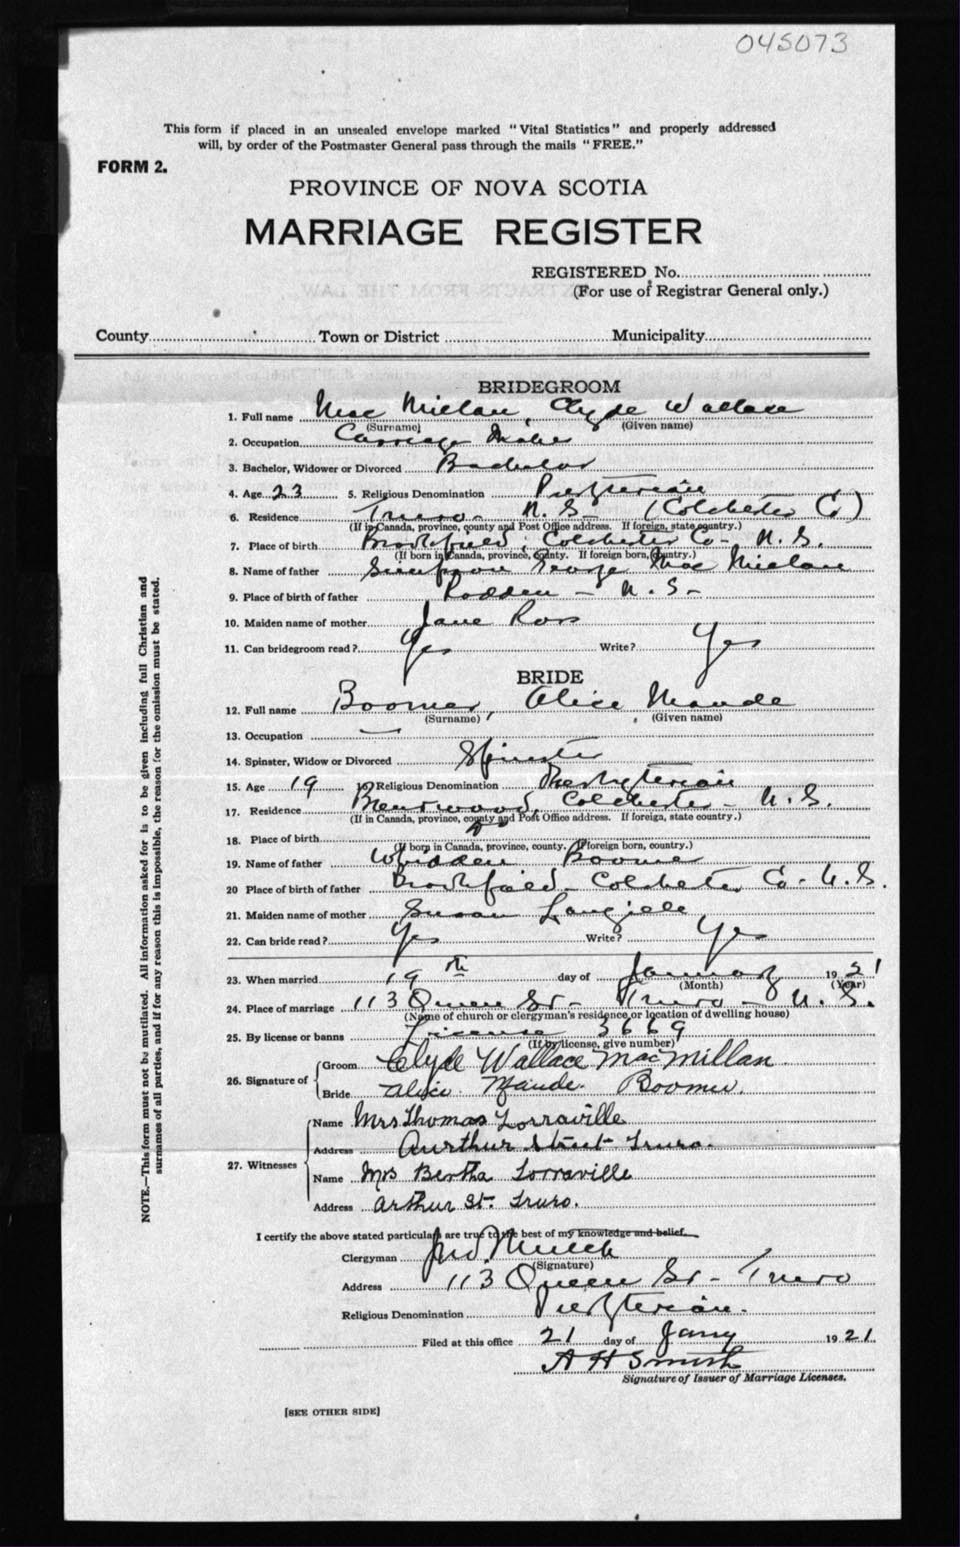 045073
This form if placed in an unsealed envelope marked "Vital Statistics" and properly addressed
will, by order of the Postmaster General pass through the mails "FREE."
FORM 2.
PROVINCE OF NOVA SCOTIA
MARRIAGE REGISTER
REGISTERED No.
(For use of Registrar General only.)
County Town or District Municipality
BRIDEGROOM
1. Full name Mac Millan, Clyde Wallace
(Surname) (Given name)
2. Occupation Carriage Maker
3. Bachelor, Widower or Divorced Bachelor
4. Age 23 5. Religious Denomination Presbyterian
6. Residence Truro. N. S. (Colchester Co)
(If in Canada, province, county and Post Office address. If foreign, state country.)
7. Place of birth Brookfield, Colchester Co- N. S.
(If born in Canada, province, county. If foreign born, country.)
8. Name of father Simpson George Mac Millan
9. Place of birth of father - N. S-
10. Maiden name of mother Jane Ross
11. Can bridegroom read? Yes Write? Yes
BRIDE
12. Full name Boomer, Alice Maude
(Surname) (Given name)
13. Occupation —
14. Spinster, Widow or Divorced Spinster
15. Age 19 16. Religious Denomination Presbyterian
17. Residence Brentwood, Colchester - N. S.
(If in Canada, province, county and Post Office address. If foreign, state country.)
18. Place of birth
(If born in Canada, province, county. If foreign born, country.)
19. Name of father Whidden Boomer
20 Place of birth of father Brookfield- Colchester Co- N. S.
21. Maiden name of mother Susan Langille
22. Can bride read? Yes Write? Yes
23. When married 19th day of January 1921
(Month) (Year)
24. Place of marriage 113 Queen St- Truro - N. S.
(Name of church or clergyman's residence or location of dwelling house)
25. By license or banns License 3669
(If by license, give number)
26. Signature of Groom Clyde Wallace MacMillan
Bride Alice Maude Boomer.
27. Witnesses Name Mrs Thomas Lorraville
Address Aurthur Street Truro.
Name Mrs Bertha Lorraville
Address Arthur St. Truro.
I certify the above stated particulars are true to the best of my knowledge and belief.
Clergyman
(Signature)
Address 113 Queen St- Truro
Religious Denomination Presbyterian.
Filed at this office 21 day of Jany 1921
A H Smith
Signature of Issuer of Marriage Licenses.
[SEE OTHER SIDE]
NOTE.—This form must not be mutilated. All information asked for is to be given including full Christian and
surnames of all parties, and if for any reason this is impossible, the reason for the omission must be stated.